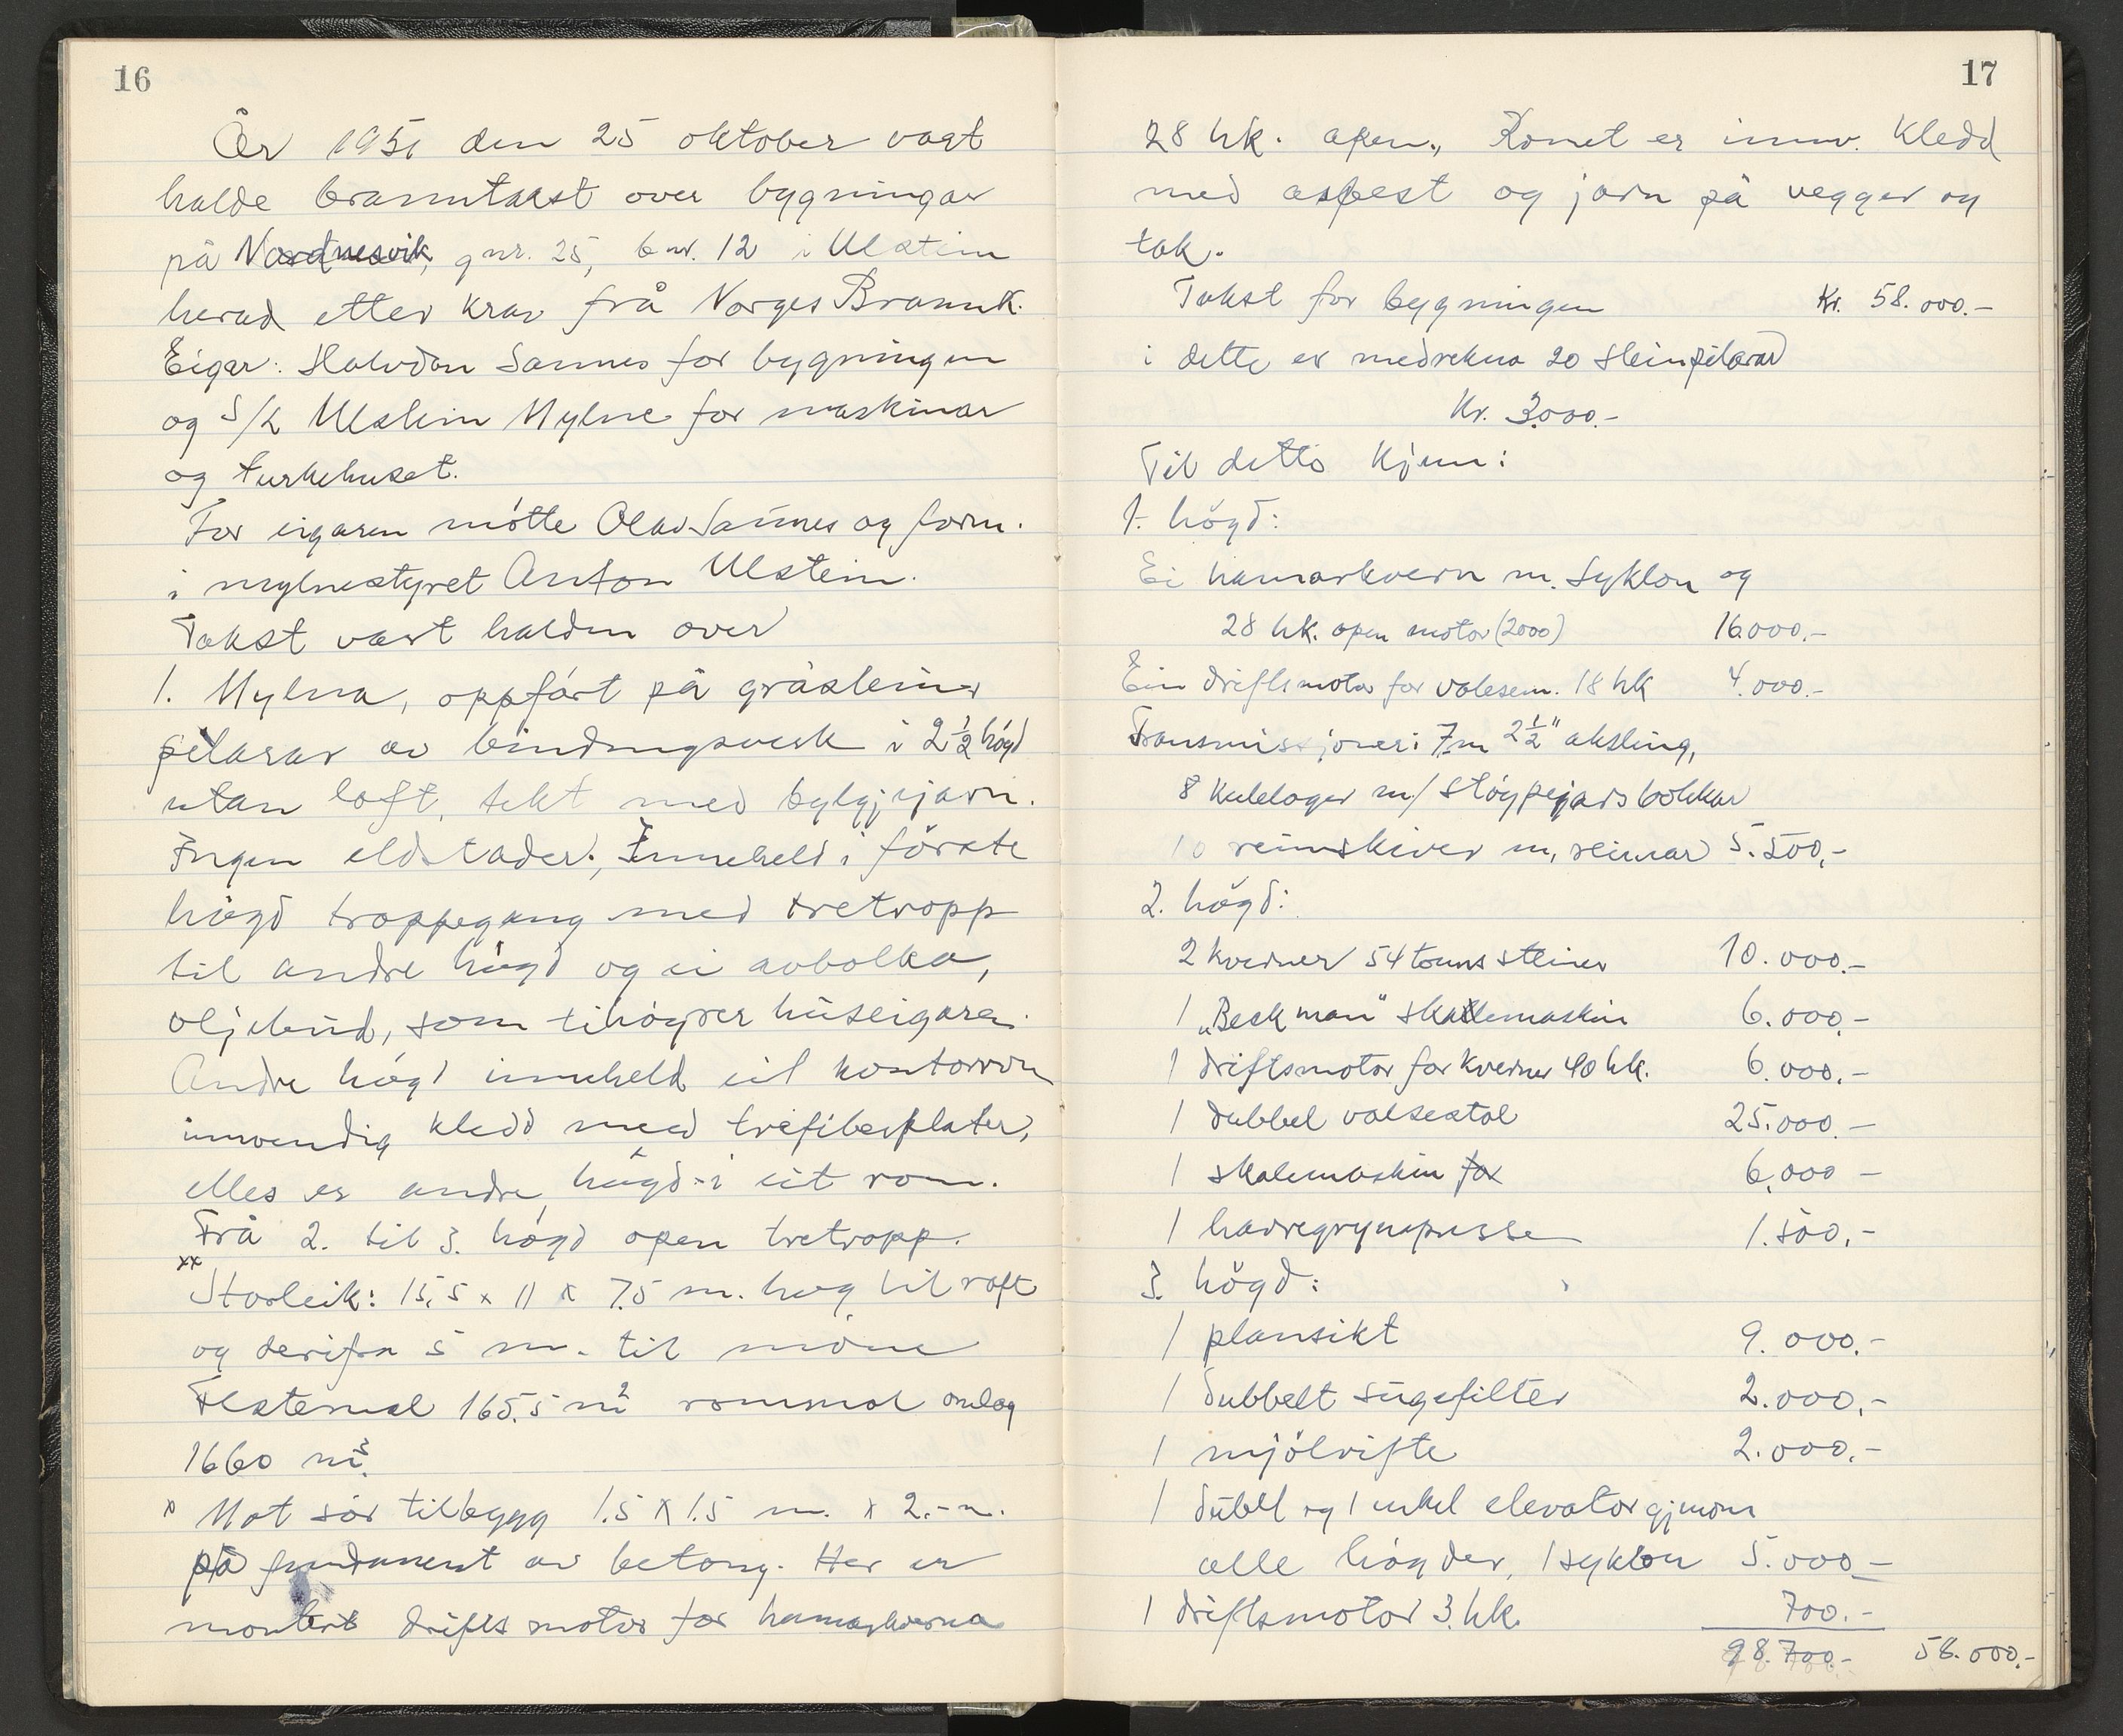 16
År 1951 den 25 oktober vart
halde branntakst over bygningar
på Nordnesvik, gnr. 25, bnr. 12 i Ulstein
herad etter krav frå Norges Brannk.
Eigar: Halvdan Sannes for bygningen
og S/L Ulstein Mylne for maskinar
og turkehuset.
For eigaren møtte Olav Sannes og form.
i mylnestyret Anton Ulstein.
Takst vart halden over
1. Mylna, oppført på gråsteins
pilarar av bindingsverk i 2 1/2 høgd
utan loft, tekt med bylgjejarn.
Ingen eldstader. Inneheld i første
høgd troppegang med tretropp
til andre høgd og ei avbolka,
oljebud, som tihøyrer huseigaren.
Andre høgd inneheld eit kontorrom
innvendig kledd med trefiberplater,
elles er andre høgd i eit rom.
Frå 2. til 3. høgd open tretropp.
xx
Storleik: 15,5 x 11 x 7.5 m. høg til raft
og derifra 5 m. til møne
Flatemål 165.5 m² rommål omlag
1660 m³.
x Mot sør tilbygg 1.5 x 1.5 m. x 2.- m.
på fundament av betong. Her er
montert driftsmotor for hamarkverna
17
28 hk. open. Romet er innv. kledd
med asbest og jarn på vegger og
tak.
Takst for bygningen Kr. 58.000.-
i dette er medrekna 20 steinpilarar
Kr. 3.000.-
Til dette kjem:
1. høgd:
Ei hamarkvern m. syklon og
28 hk. open motor (2000) 16.000.-
Ein driftsmotor for valsem. 18 hk 4.000.-
Transmissjoner: 7 m 2 1/2" aksling,
8 kulelager m/ støypejarsbokkar
10 reimskiver m, reimar 5.500,-
2. høgd:
2 kverner 54 toms steiner 10.000.-
1 „Beckman" skallemaskin 6.000.-
1 driftsmotor for kverner 40 hk. 6.000.-
1 dubbel valsestol 25.000.-
1 skalemaskin for 6,000 -
1 havregrynspresse 1.500,-
3. høgd:
1 plansikt 9.000.-
1 dubbelt sugefilter 2.000,-
1 mjølvifte 2.000.-
1 dubbel og 1 enkel elevator gjenom
alle høgder, 1 syklon 5.000.-
1 driftsmotor 3. hk. 700.-
98.700.- 58.000.-